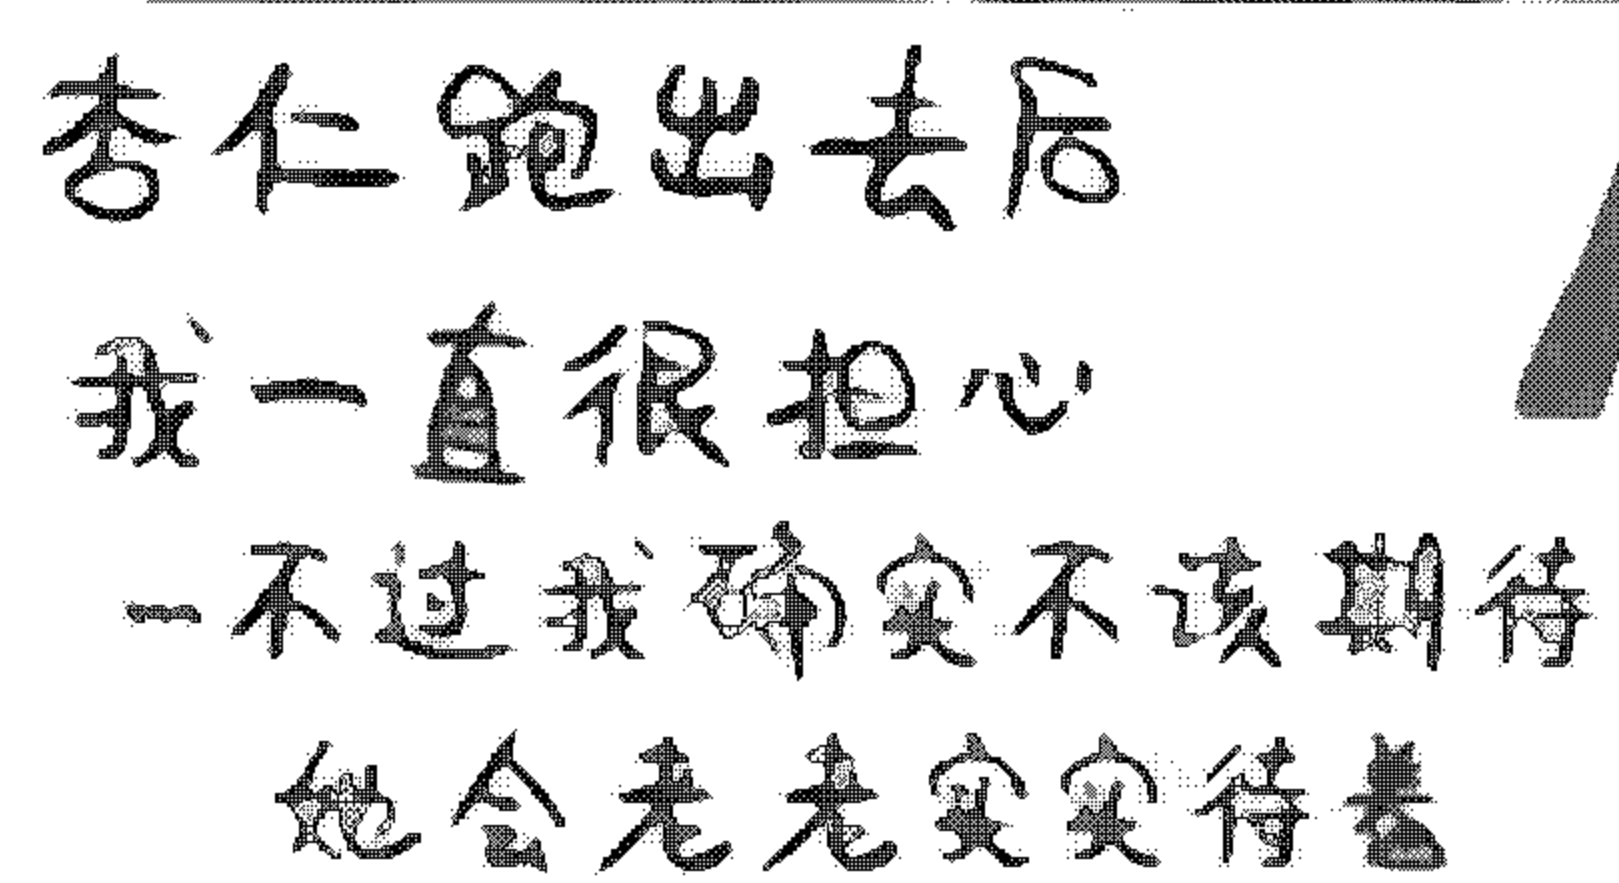 杏仁跑出去后
我一直很担心
-不过我确实不该期待
她会老老实实待着